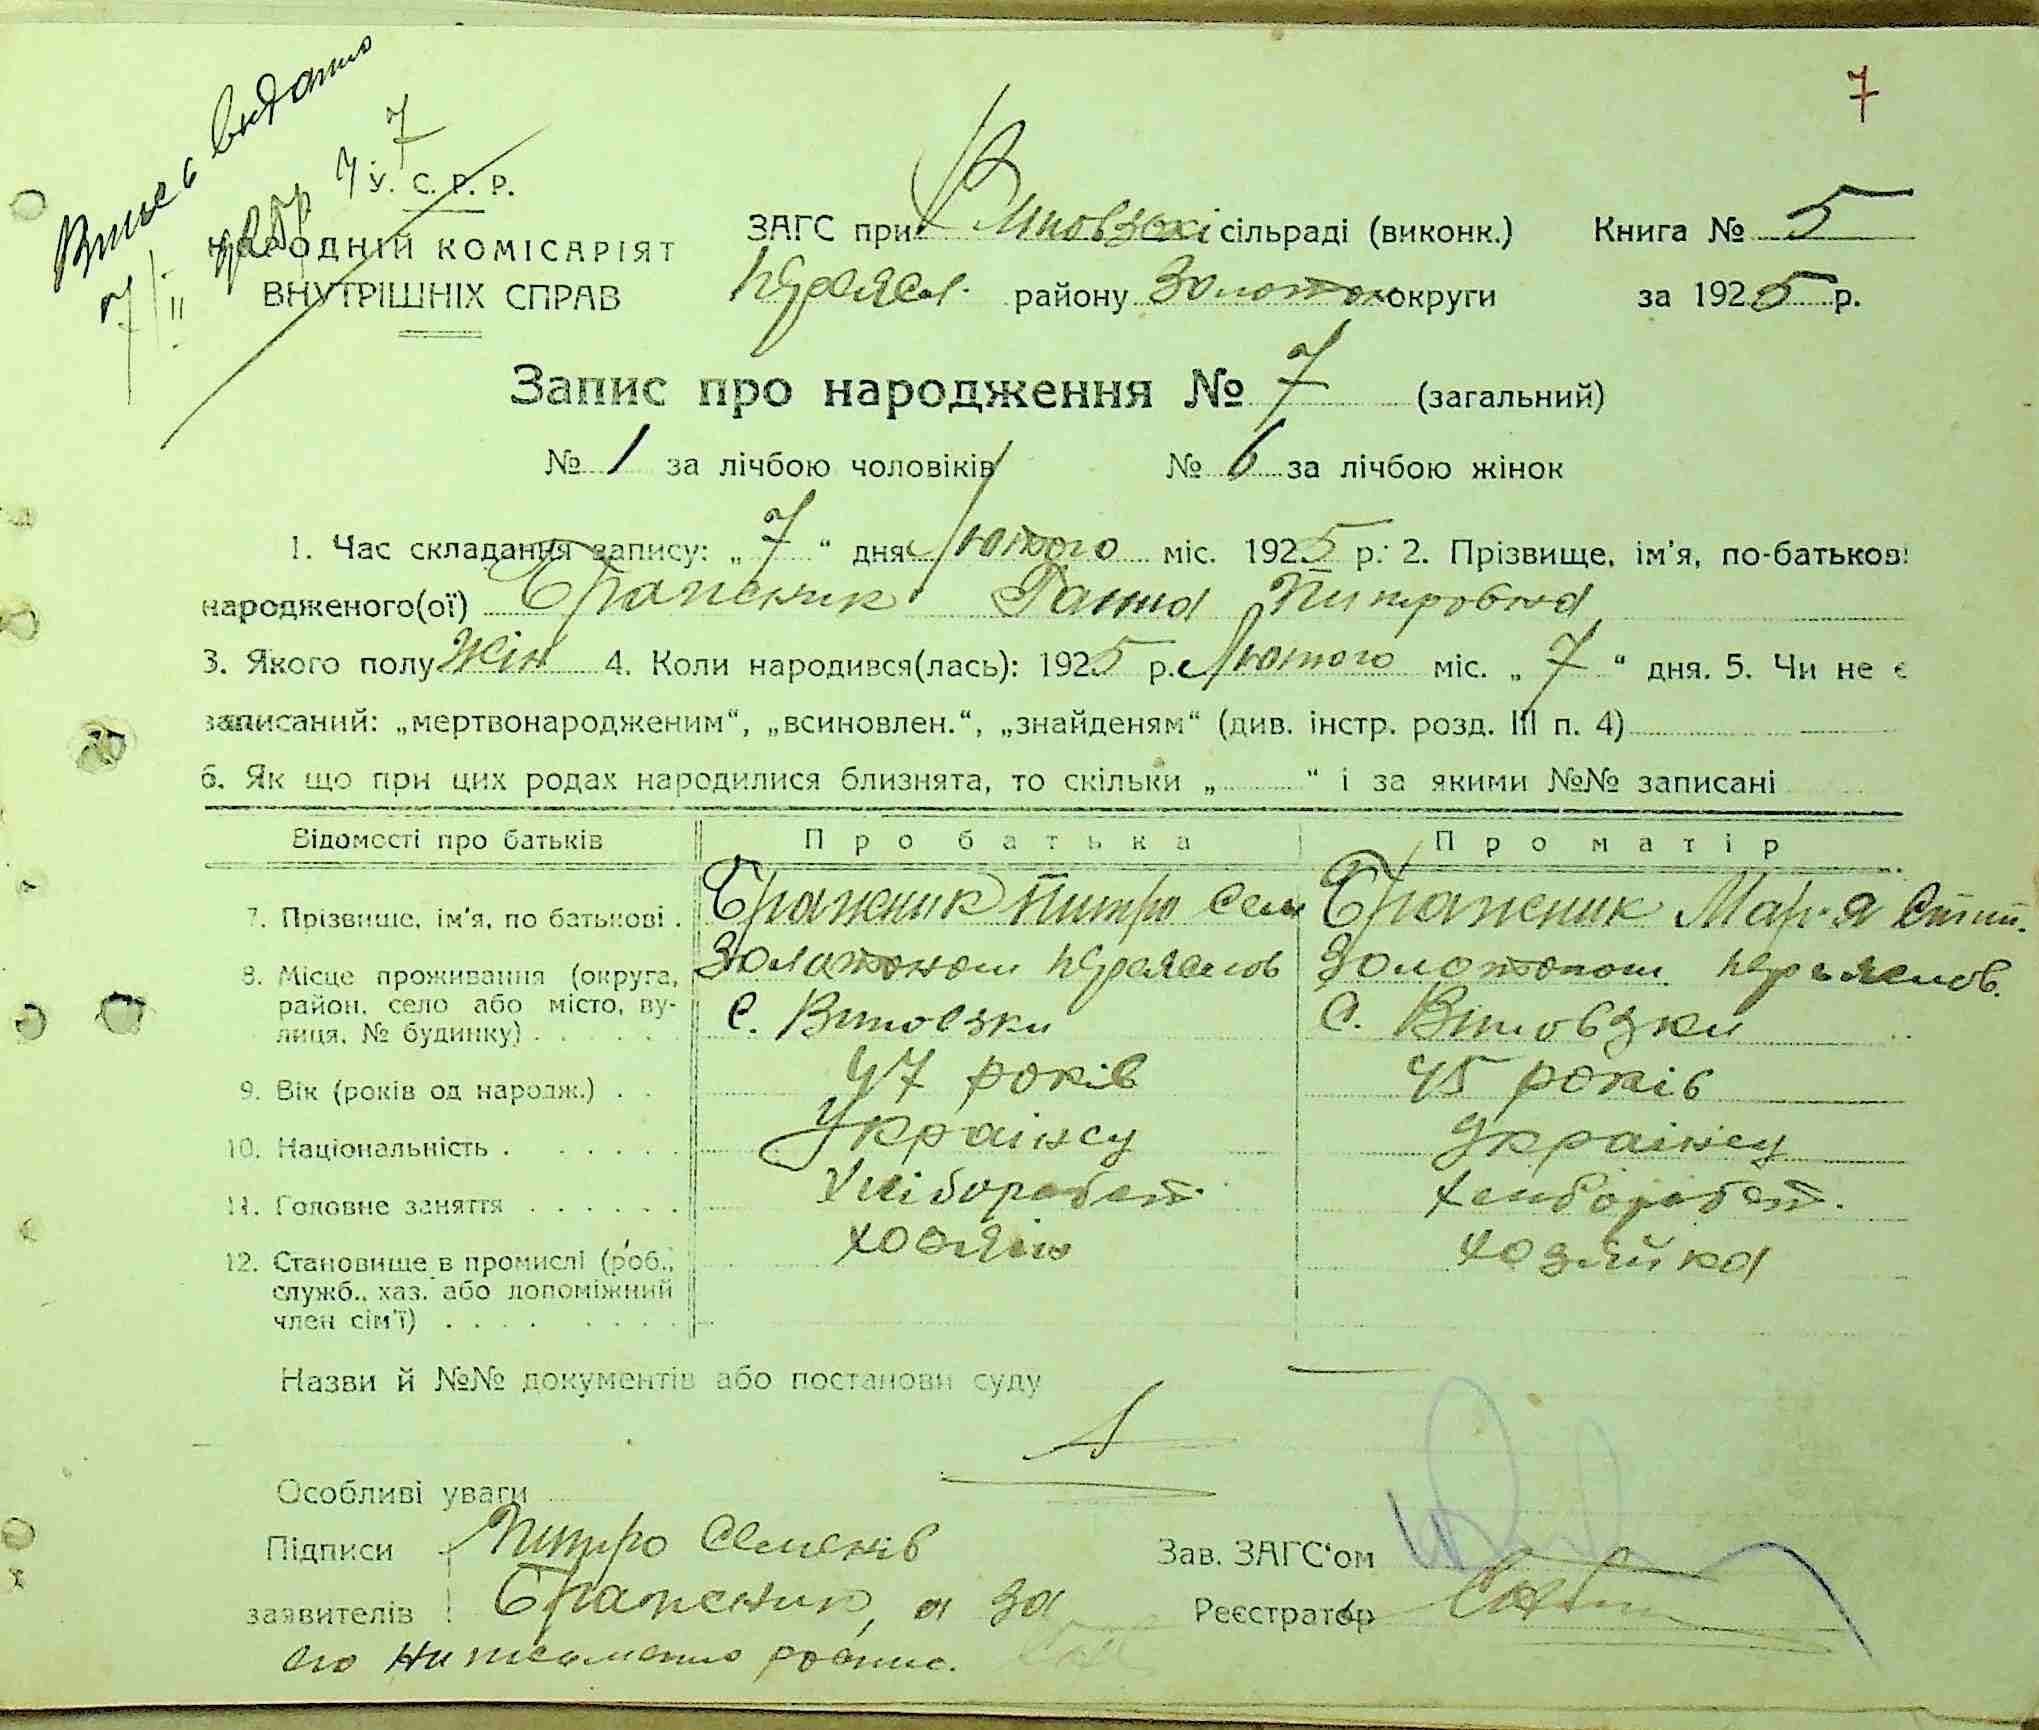 7
Випис видано
7/II
У. С. Р. Р.
НАРОДНІЙ КОМІСАРІЯТ
ВНУТРІШНІХ СПРАВ
ЗАГС при сільраді (виконк.) Книга № 5
Переясл. району Золотон округи за 1925 р.
Запис про народження № 7 (загальний)
№ 1 за лічбою чоловіків № 6 за лічбою жінок
1. Час складання запису: „ 7 “ дня Лютого міс. 1925 р. 2. Прізвище, ім'я, по-батькові
народженого(ої) Бражник Ганна Питровна
3. Якого полу Жін 4. Коли народився(лась): 1925 р. Лютого міс. „ 7 “ дня. 5. Чи не є
записаний: „мертвонародженим“, „всиновлен.“, „знайденям“ (див. інстр. розд. III п. 4)
6. Як що при цих родах народилися близнята, то скільки „ “ і за якими №№ записані
Відомості про батьків Про батька Про матір
7. Прізвище, ім'я, по батькові . Бражник Питро Сем Бражник Мар'я Стип.
8. Місце проживання (округа, район, село або місто, вулиця, № будинку) . . . . . Золотоном Переяслов Золотоном. Переяслов.
с. Виповзки С. Віповзки
9. Вік (років од народж.) . . 47 років 45 років
10. Національність . . . . . . Українсц Українсц
11. Головне заняття . . . . . . Хліборобст. Хлиборобст.
12. Становище в промислі (роб., Хозяін Хозяйка
служб., хаз. або допоміжний
член сім'ї) . . . . . . . .
Назви й №№ документів або постанови суду
Особливі уваги
Підписи Питро Семенів Зав. ЗАГС'ом
заявителів Бражник, а за Реєстратор
его ниписьменно роспис.